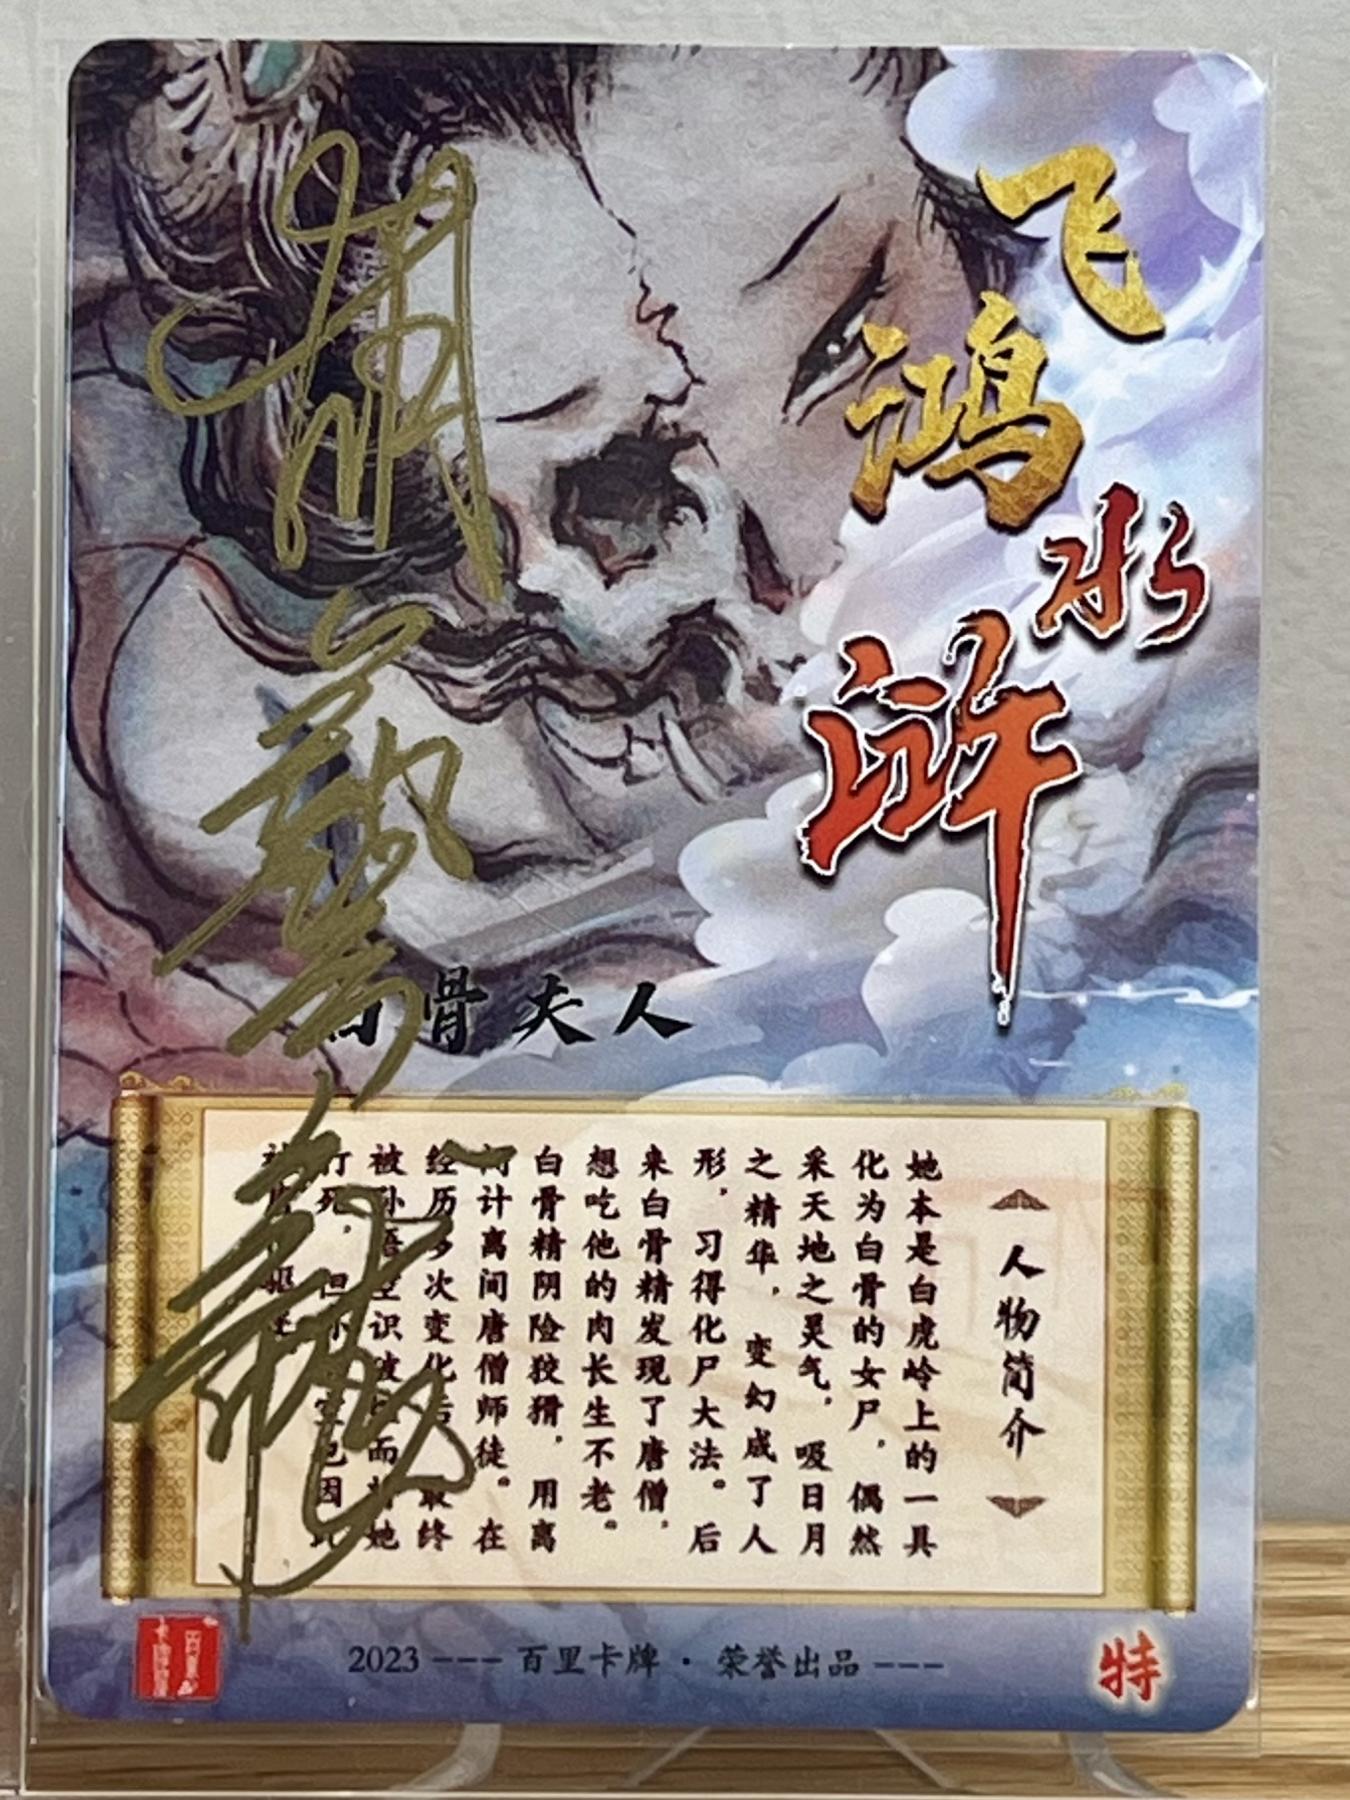 飞鸿
水浒
白骨夫人
人物简介
她本是白虎岭上的一具
化为白骨的女尸，偶然
采天地之灵气，吸日月
之精华，变幻成了人
形，习得化尸大法。后
来白骨精发现了唐僧，
想吃他的肉长生不老。
白骨精阴险狡猾，用离
间计离间唐僧师徒。在
经历多次变化后 最终
被孙悟空识破 而将她
打死，但孙悟空也因此
被 驱逐
2023 --- 百里卡牌 · 荣誉出品 ---
特